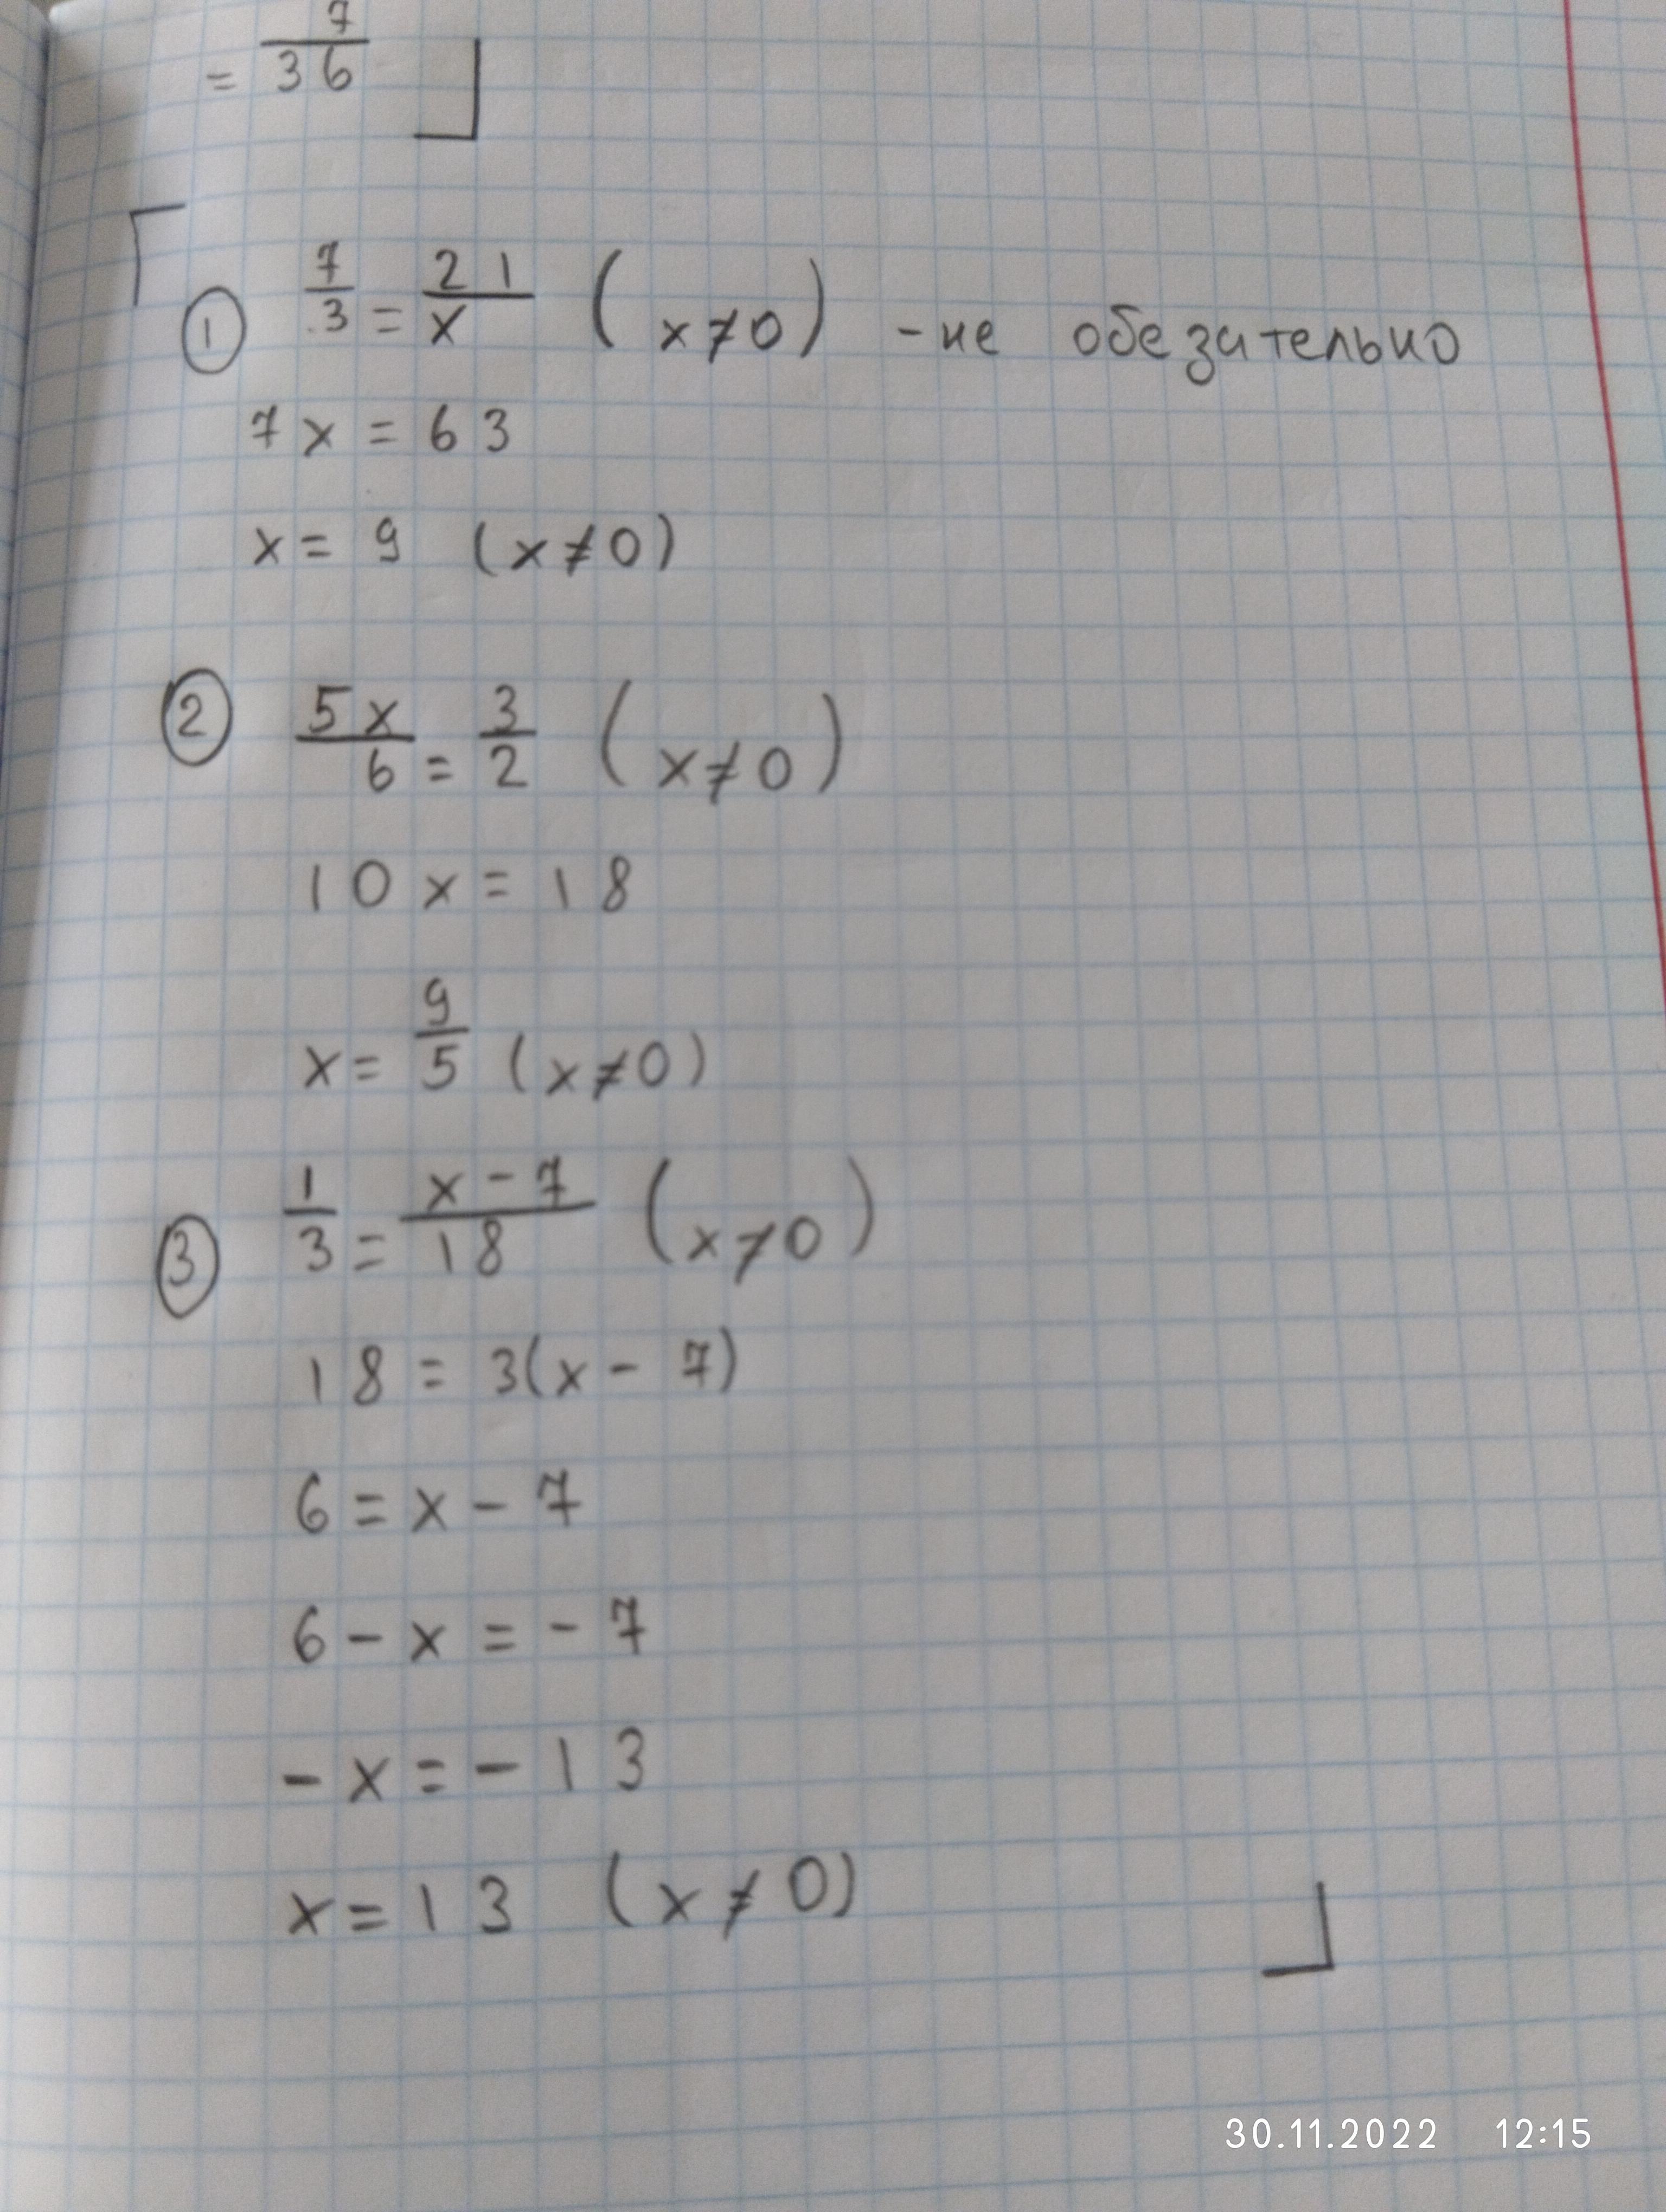 = 7/36
① 7/3 = 21/x (x≠0) - не обезательно
7x = 63
x = 9 (x≠0)
② 5x/6 = 3/2 (x≠0)
10x = 18
x = 9/5 (x≠0)
③ 1/3 = x-7/18 (x≠0)
18 = 3(x - 7)
6 = x - 7
6 - x = - 7
- x = - 13
x = 13 (x≠0)
30.11.2022 12:15